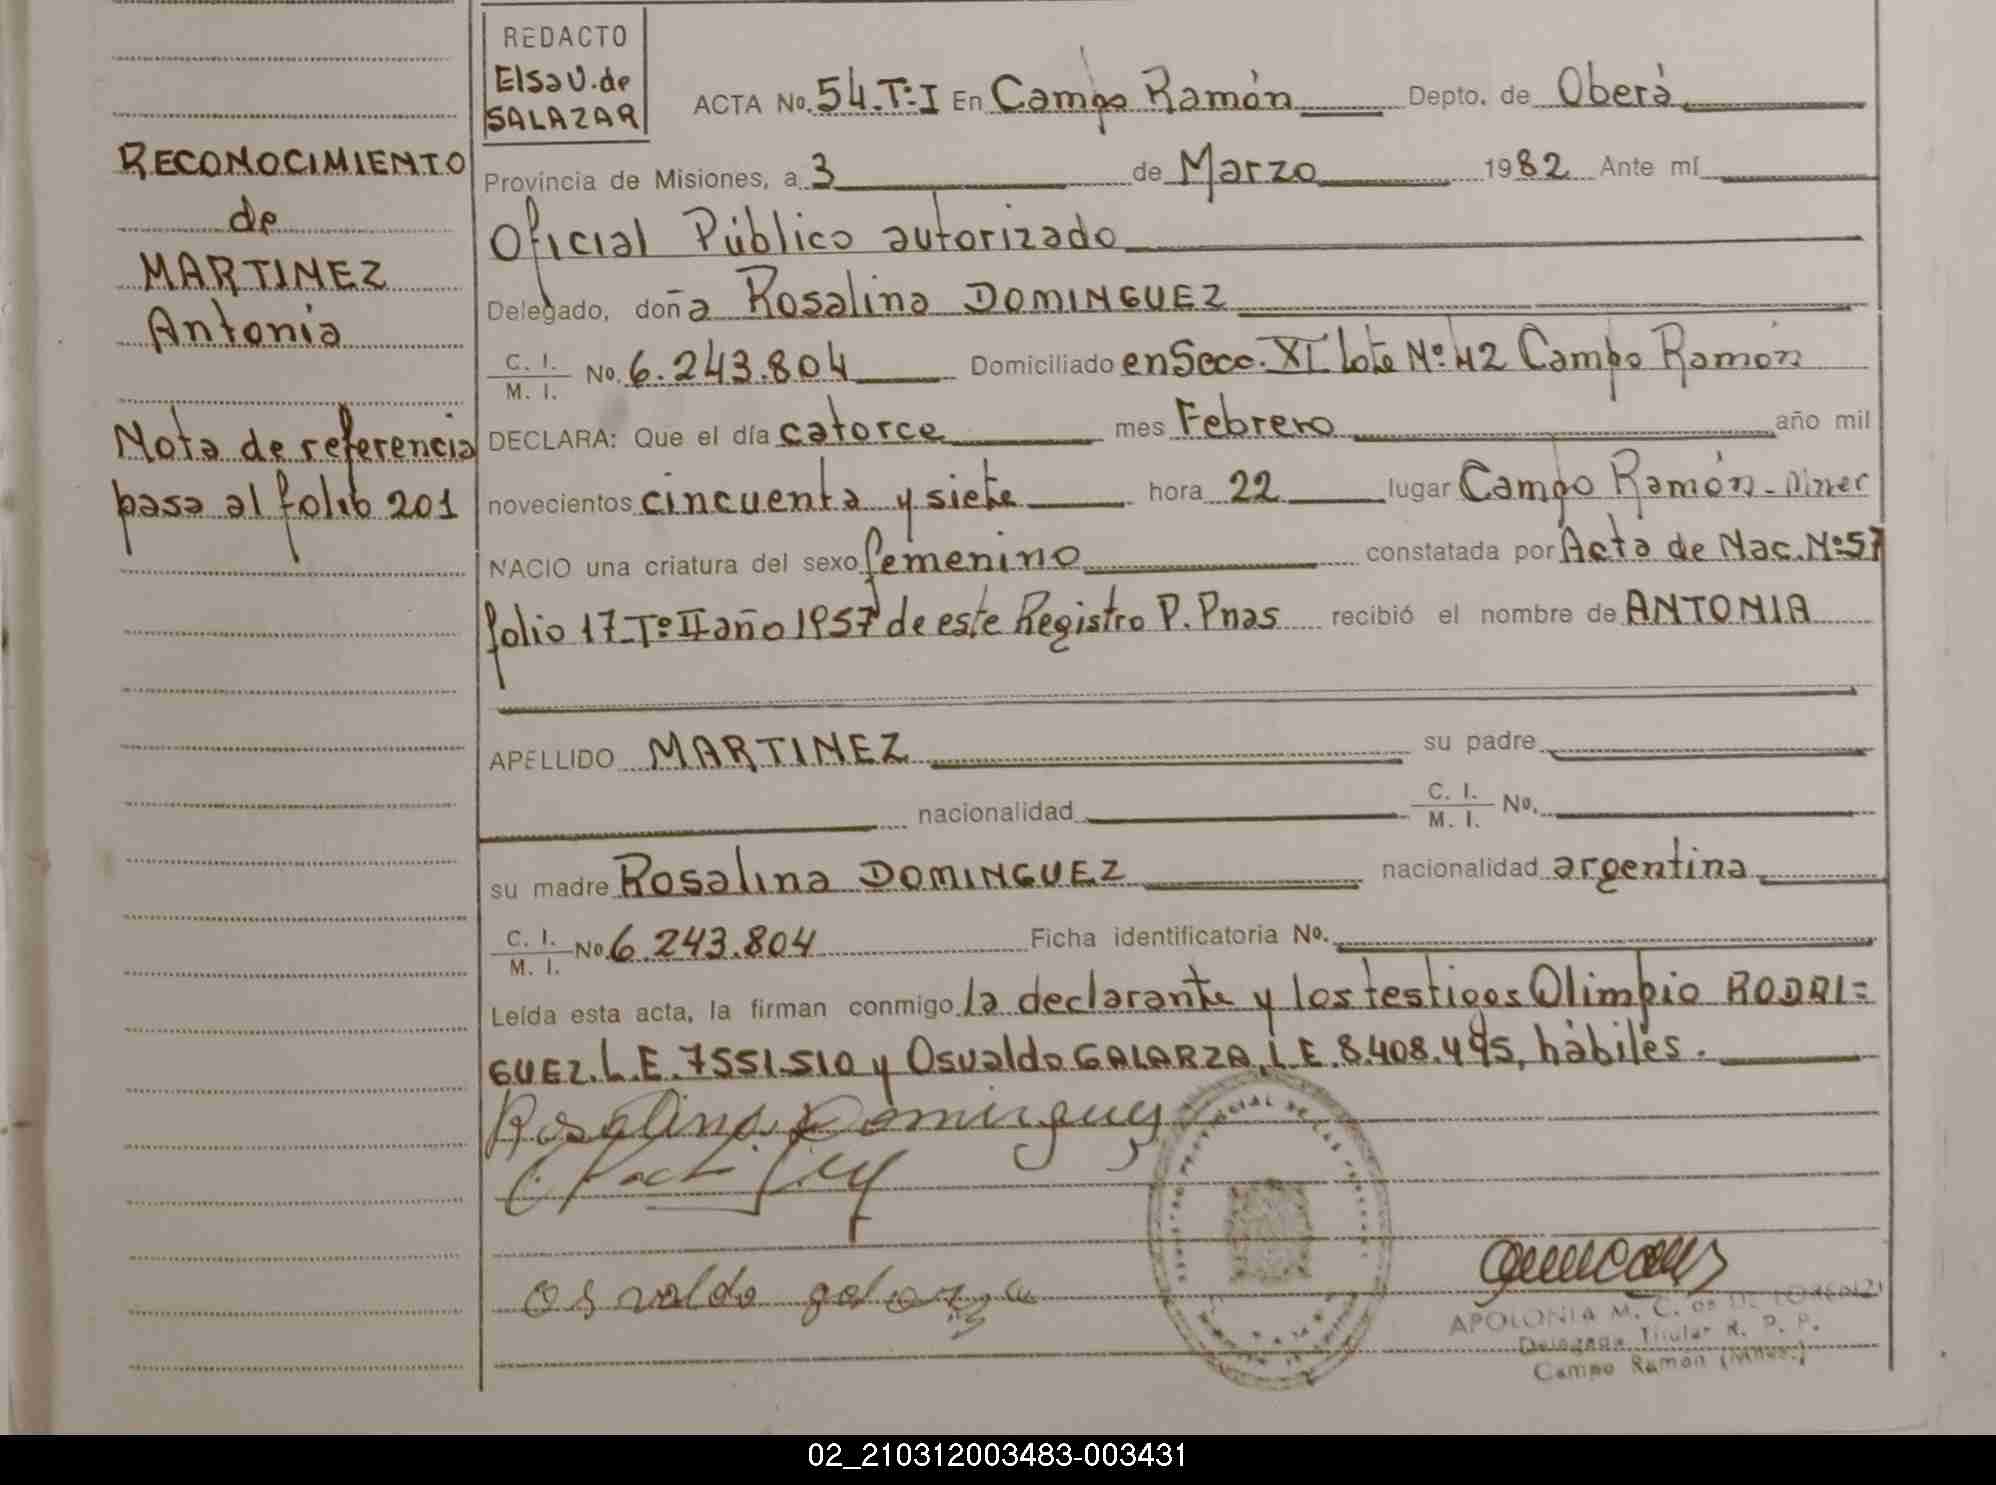 REDACTO
Elsa V. de
SALAZAR
ACTA No. 54.Tº I En Campo Ramón Depto. de Oberá
Provincia de Misiones, a 3 de Marzo 1982 Ante mí
Oficial Público autorizado
Delegado, doña Rosalina DOMINGUEZ
C. I.
M. I. No. 6.243.804 Domiciliado en Secc. XI lote Nº 42 Campo Ramón
DECLARA: Que el día catorce mes Febrero año mil
novecientos cincuenta y siete hora 22 lugar Campo Ramón -
NACIO una criatura del sexo femenino constatada por Acta de Nac. Nº 57
folio 17-Tº II año 1957 de este Registro P. Pnas recibió el nombre de ANTONIA
APELLIDO MARTINEZ su padre
nacionalidad C. I.
M. I. No.
su madre Rosalina DOMINGUEZ nacionalidad argentina
C. I.
M. I. No 6.243.804 Ficha identificatoria No.
Leída esta acta, la firman conmigo la declarante y los testigos Olimpio RODRI=
GUEZ. L.E. 7551.510 y Osvaldo GALARZA, L.E. 8.408.495, hábiles.
Rosalina Dominguez
osvaldo galarza
APOLONIA M. C. de DE LORENZI
Delegada Titular R. P. P.
Campo Ramón (Mnes.)
RECONOCIMIENTO
de
MARTINEZ
Antonia
Nota de referencia
pasa al folio 201
02_210312003483-003431